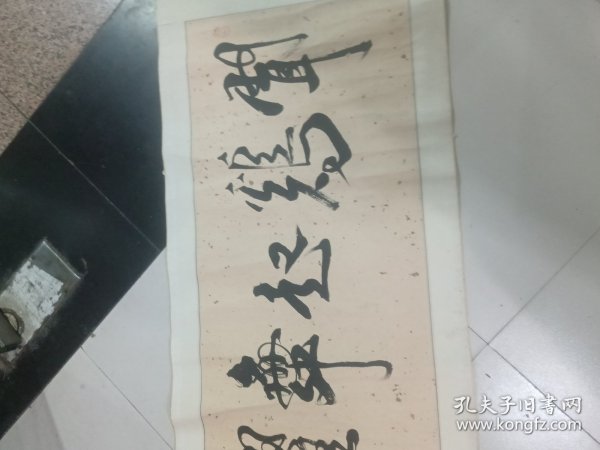 聞鷄起舞
孔夫子旧书网
www.kongfz.com